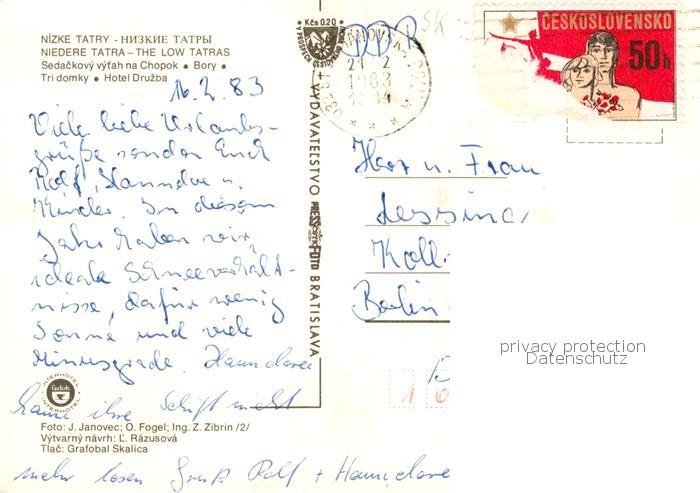 NÍZKE TATRY - НИЗКИЕ ТАТРЫ
NIEDERE TATRA – THE LOW TATRAS
Sedačkový výťah na Chopok • Bory •
Tri domky • Hotel Družba
16.2.83
Viele liebe Urlaubs-
grüße senden Euch
Rolf, Hannelore u.
Kinder. In diesem
Jahr haben wir
ideale Schneeverhält-
nisse, dafür wenig
Sonne und viele
Minusgrade. Hannelore
kann ihre Schrift nicht
mehr lesen Gruß Rolf + Hannelore
INTERHOTEL
Čedok
INTERHOTEL
Foto: J. Janovec; O. Fogel; Ing. Z. Zibrin /2/
Výtvarný návrh: Ľ. Rázusová
Tlač: Grafobal Skalica
VYDAVATEĽSTVO PRESSFOTO BRATISLAVA
Kčs 0.20
DDR
SK
21.2.
1983
14
ČESKOSLOVENSKO
50h
Herr u. Frau
Lessing
Koll
Berlin
1
0
privacy protection
Datenschutz